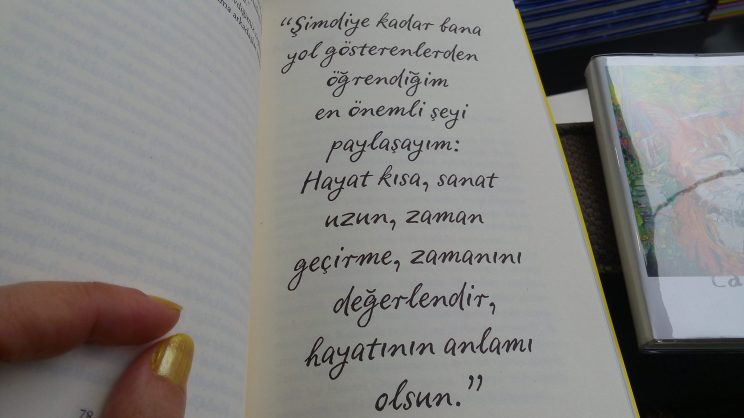 “Şimdiye kadar bana
yol gösterenlerden
öğrendiğim
en önemli şeyi
paylaşayım:
Hayat kısa, sanat
uzun, zaman
geçirme, zamanını
değerlendir,
hayatının anlamı
olsun.”
78